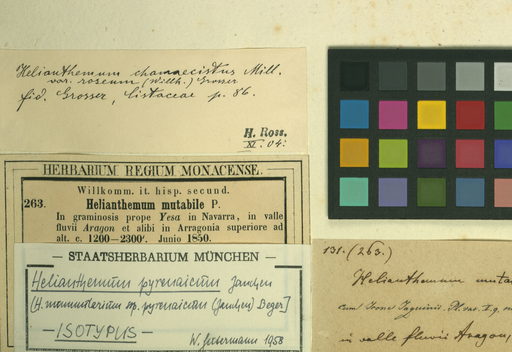 Helianthemum chamaecistus Mill.
var. roseum (Willk.) Grosser
fid. Grosser, Cistaceae p. 86.
H. Ross.
XI. 04.
HERBARIUM REGIUM MONACENSE.
Willkomm. it. hisp. secund.
263. Helianthemum mutabile P.
In graminosis prope Yesa in Navarra, in valle
fluvii Aragon et alibi in Arragonia superiore ad
alt. c. 1200—2300'. Junio 1850.
— STAATSHERBARIUM MÜNCHEN —
Helianthemum pyrenaicum Janchen
(H. nummularium ssp. pyrenaicum (Janchen)
— ISOTYPUS —
1958
131. (263.)
Helianthemum
in valle fluvii Aragon,